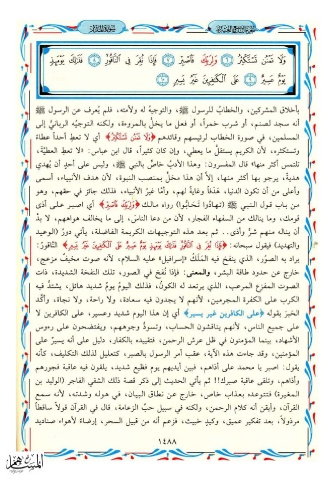 وَلَا تَمْنُن تَسْتَكْثِرُ ٦ وَلِرَبِّكَ فَاصْبِرْ ٧ فَإِذَا نُقِرَ فِي النَّاقُورِ ٨ فَذَٰلِكَ يَوْمَئِذٍ
يَوْمٌ عَسِيرٌ ٩ عَلَى الْكَافِرِينَ غَيْرُ يَسِيرٍ ١٠
بأخلاق المشركين، والخطاب للرسول ﷺ، والتوجيه له ولأمته، فلم يُعرف عن الرسول ﷺ
أنه سجد لصنم، أو شرب خمراً، أو فعل ما يخلّ بالمروءة، ولكنه التوجيه الرباني إلى
المسلمين، في صورة الخطاب لرئيسهم وقائدهم ﴿وَلَا تَمْنُن تَسْتَكْثِرُ﴾ أي لا تعط أحداً عطاءً
وتستكثره، لأن الكريم يستقل ما يعطي، وإن كان كثيراً، قال ابن عباس: "لا تعط العطية،
تلتمس أكثر منها" قال المفسرون: وهذا الأدب خاص بالنبي ﷺ، وليس على أحدٍ أن يُهدي
هدية، يرجو بها أكثر منها، إلا أن هذا مخلٌ بمنصب النبوة، لأن هدف الأنبياء، أسمى
وأعلى من أن تكون الدنيا، هدفاً وغاية لهم، وأما غير الأنبياء، فذلك جائز في حقهم، وهو
من باب قول النبي ﷺ (تهادوا تحابوا) رواه مالك ﴿وَلِرَبِّكَ فَاصْبِرْ﴾ أي اصبر على أذى
قومك، وما ينالك من السفهاء الفجار، لأن من دعا الناس، إلى ما يخالف هواهم، لا بدَّ
أن يناله منهم شرٌّ وأذى.. ثم بعد هذه التوجيهات الكريمة الفاضلة، يأتي دور الوعيد
والتهديد) فيقول سبحانه: ﴿فَإِذَا نُقِرَ فِي النَّاقُورِ فَذَٰلِكَ يَوْمَئِذٍ يَوْمٌ عَسِيرٌ عَلَى الْكَافِرِينَ غَيْرُ يَسِيرٍ﴾ النَّاقُور:
يراد به الصُّور، الذي ينفخ فيه الملَك (إسرافيل) عليه السلام، لأنه صوت مخيف مزعج،
خارج عن حدود طاقة البشر، والمعنى: فإذا نُفخ في الصور، تلك النفخة الشديدة، ذات
الصوت المفزع المرعب، الذي يرتعد له الكون، فذلك اليوم يومٌ شديد هائل، يشتدّ فيه
الكرب على الكفرة المجرمين، لأنهم لا يجدون فيه سعادة، ولا راحة، ولا نجاة، وأكّد
الخبر بقوله ﴿على الكافرين غير يسير﴾ أي إن هذا اليوم شديد وعسير، على الكافرين لا
على جميع الناس، لأنهم يناقشون الحساب، وتسودُّ وجوههم، ويفتضحون على رءوس
الأشهاد، بينما المؤمنون في ظل عرش الرحمن، فتقييده بالكفار، دليل على أنه يسير على
المؤمنين، وقد جاءت هذه الآية، عقب أمر الرسول بالصبر، كتعليل لذلك التكليف، كأنه
يقول: اصبر يا محمد على أذاهم، فبين أيديهم يوم فظيع شديد، يلقون فيه عاقبة فجورهم
وأذاهم، وتلقى عاقبة صبرك!! ثم يأتي الحديث إلى ذكر قصة ذلك الشقي الفاجر (الوليد بن
المغيرة) فتتوعده بعذاب خاص، خارج عن نطاق البيان، في هوله وشدته، لأنه سمع
القرآن، وأيقن أنه كلام الرحمن، ولكنه في سبيل حبّ الزعامة، قال في القرآن قولاً ساقطاً
مرذولاً، بعد تفكير عميق، وكيدٍ خبيث، فزعم أنه من قبيل السحر، إرضاءً لأهواء صناديد
١٤٨٨